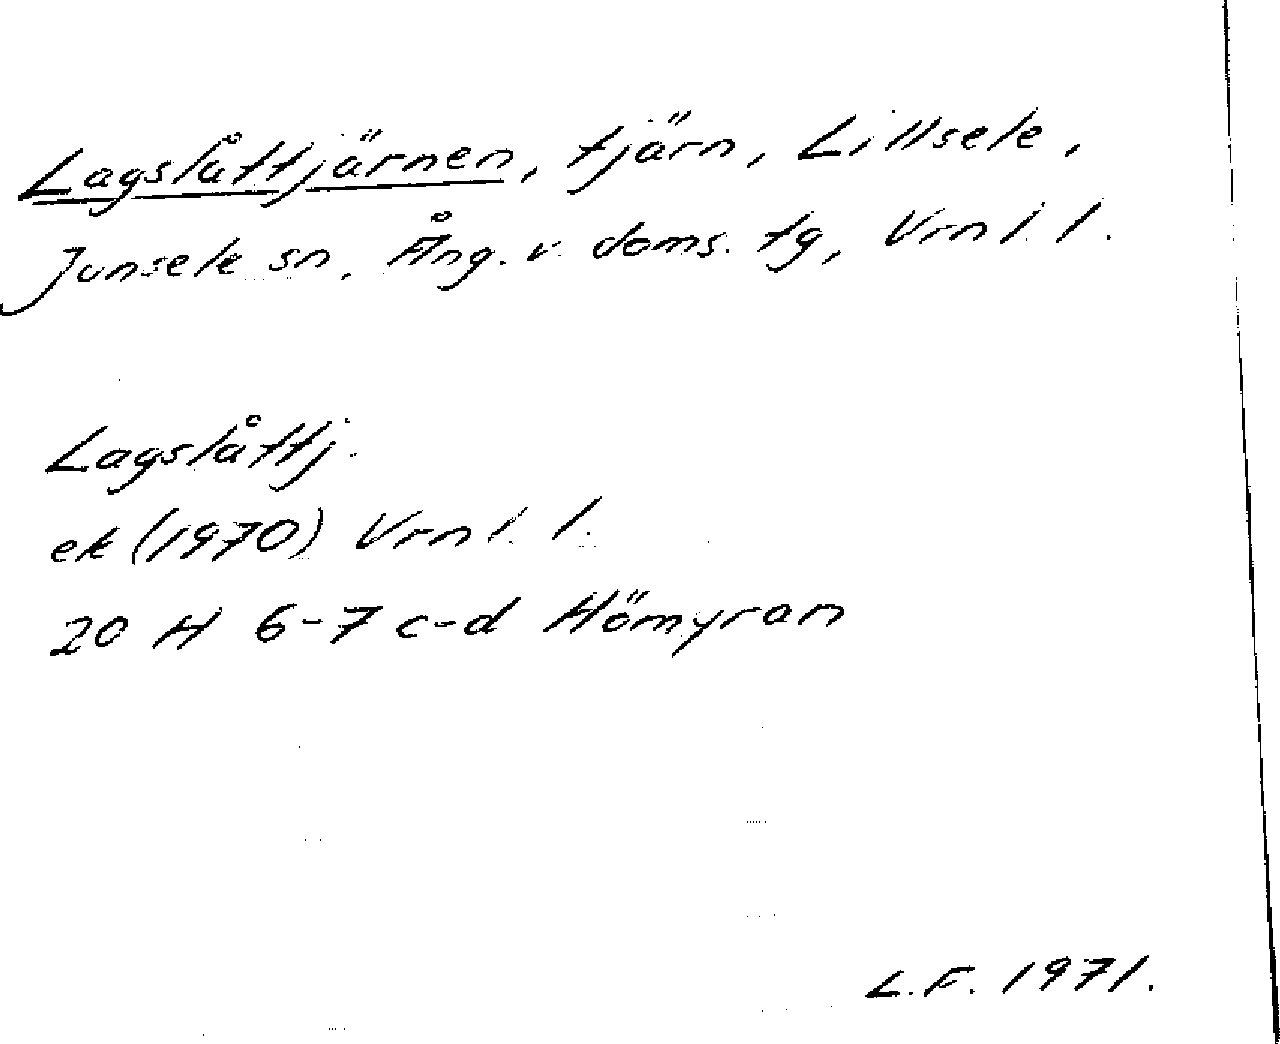 Lagslåttjärnen, tjärn, Lillsele,
Junsele sn, Ång. v. doms. tg, Vrnl. l.
Lagslåttj.
ek (1970) Vrnl. l.
20 H 6-7 c-d Hömyran
L.F. 1971.